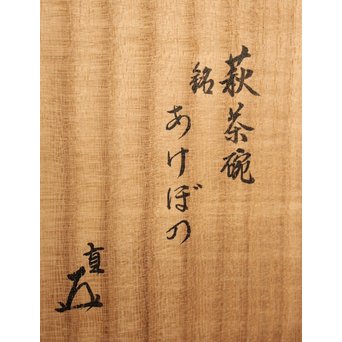 萩茶碗
銘
あけぼの